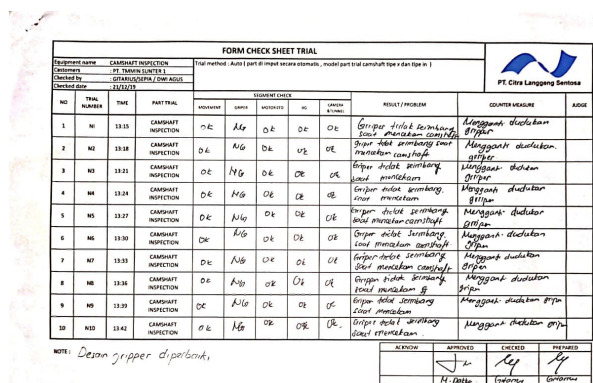 FORM CHECK SHEET TRIAL
Equipment name CAMSHAFT INSPECTION
Customers : PT. TMMIN SUNTER 1
Checked by : GITARIUS/SEPIA / DWI AGUS
Checked date : 21/12/19
Trial method : Auto ( part di input secara otomatis , model part trial camshaft tipe x dan tipe in )
PT. Citra Langgeng Sentosa
NO TRIAL NUMBER TIME PART TRIAL SEGMENT CHECK RESULT / PROBLEM COUNTER MEASURE JUDGE
MOVEMENT GRIPER MOTORIZED IKG CAMERA &TUNNEL
1 N1 13:15 CAMSHAFT INSPECTION ok NG ok ok ok Gripper tidak seimbang saat mencekam camshaft Mengganti dudukan gripper
2 N2 13:18 CAMSHAFT INSPECTION ok NG ok ok ok gripper tidak seimbang saat mencekam camshaft Mengganti dudukan gripper
3 N3 13:21 CAMSHAFT INSPECTION ok NG ok ok ok Griper tidak seimbang saat mencekam Mengganti dudukan griper
4 N4 13:24 CAMSHAFT INSPECTION ok NG ok ok ok Griper tidak seimbang saat mencekam Mengganti dudukan griper
5 N5 13:27 CAMSHAFT INSPECTION ok NG ok ok ok Griper tidak seimbang saat mencekam camshaft Mengganti dudukan griper
6 N6 13:30 CAMSHAFT INSPECTION ok NG ok ok ok Griper tidak seimbang saat mencekam camshaft Mengganti dudukan griper
7 N7 13:33 CAMSHAFT INSPECTION ok NG ok ok ok Griper tidak seimbang saat mencekam camshaft Mengganti dudukan griper
8 N8 13:36 CAMSHAFT INSPECTION ok NG ok ok ok Gripper tidak seimbang saat mencekam Mengganti dudukan griper
9 N9 13:39 CAMSHAFT INSPECTION ok NG ok ok ok Griper tidak seimbang saat mencekam Mengganti dudukan
10 N10 13:42 CAMSHAFT INSPECTION ok NG ok ok ok Griper tidak seimbang saat mencekam Mengganti dudukan
NOTE : Desain gripper diperbaiki
ACKNOW APPROVED CHECKED PREPARED